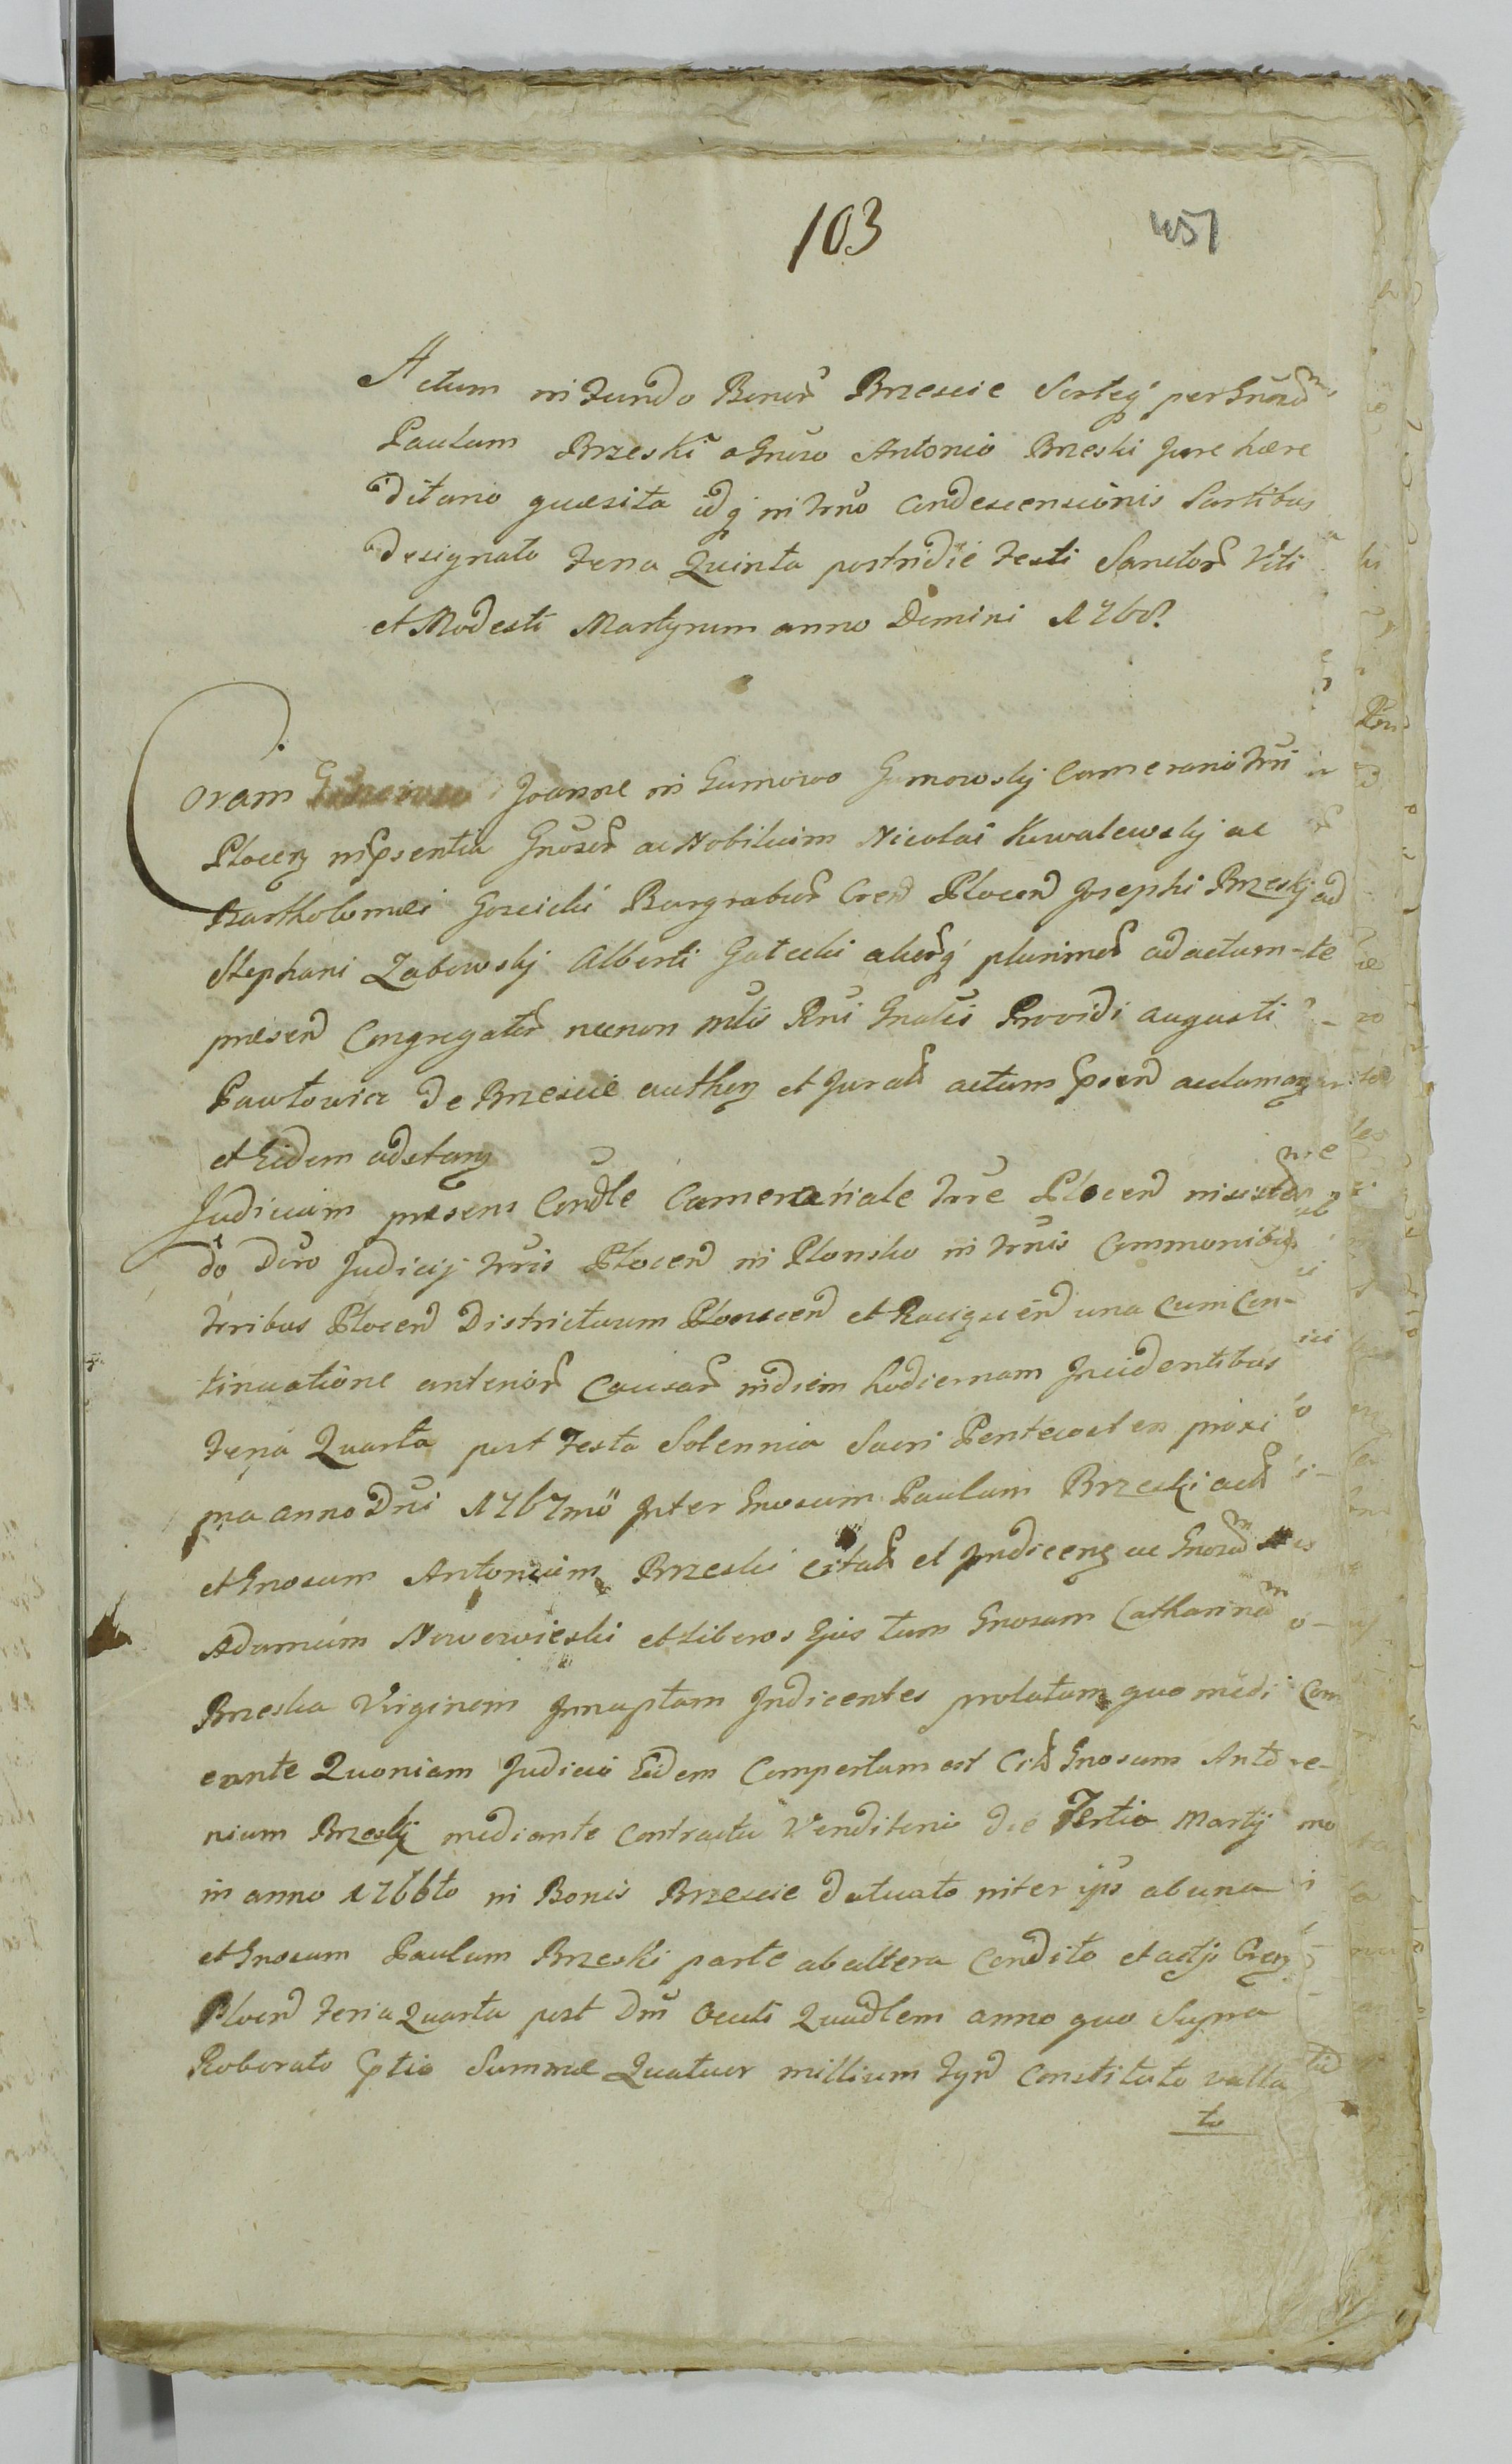 103 451
Actum in Fundo Bonor Brzescie Sorteq per Gnosum
Paulum Brzeski a Gnoso Antonio Brzeski Jure hære
ditario quæsita idq in Trno Condescensionis Partibus
designato Feria Quinta postridie Festi Sanctor Viti
et Modesti Martyrum anno Domini 1768
Coram Joanne in Gumowo Gumowskij Camerario Trri
Plocen in psentia Gnosor ac Nobilium Nicolai Kowalewskij ac
Bartholomæi Goscicki Burgrabior Cren Plocen Josephi Brzeskj
Stephani Zabowskj Alberti Gałecki alior plurimor ad actum
præsen Congregator necnon mtis Rni Gnalis Providi Augusti
Pawłowicz de Brzescie authen et Jurati actum psen aclaman
et Eidem adstan
Judicium præsens Condle Camerariale Trre Plocen
do Dcro Judicij Trris Plocen in Plonsko in Trnis Commonibus
Trribus Plocen Districtuum Plonscen et Raciązen una cum Con-
tinuatione anterior Causar in diem hodiernam Incidentibus
Feria Quarta post Festa Solennia Sacri Pentecosten proxi
ma anno Dni 1767mo Inter Gnosum Paulum Brzeski act
et Gnosum Antonium Brzeski citat et Indicen ac Gnosum
Adamum Nowowieski et Liberos Ejus tum Gnosam Catharinam
Brzeska Virginem Innuptam Indicentes prolatum quo medi
eante Quoniam Judicio Eidem Compertum est Cit Gnosum Anto
nium Brzeskj mediante Contractu Venditorio die Tertia Martij
in anno 1766to in Bonis Brzescie datuato inter ips ab una
et Gnosum Paulum Brzeski parte ab altera Condito et actis Cren
Plocen Feria Quarta post Dm Oculi Quadlem anno quo Supra
Roborato ptio Summæ Quatuor millium Fpn Constituto valla
to